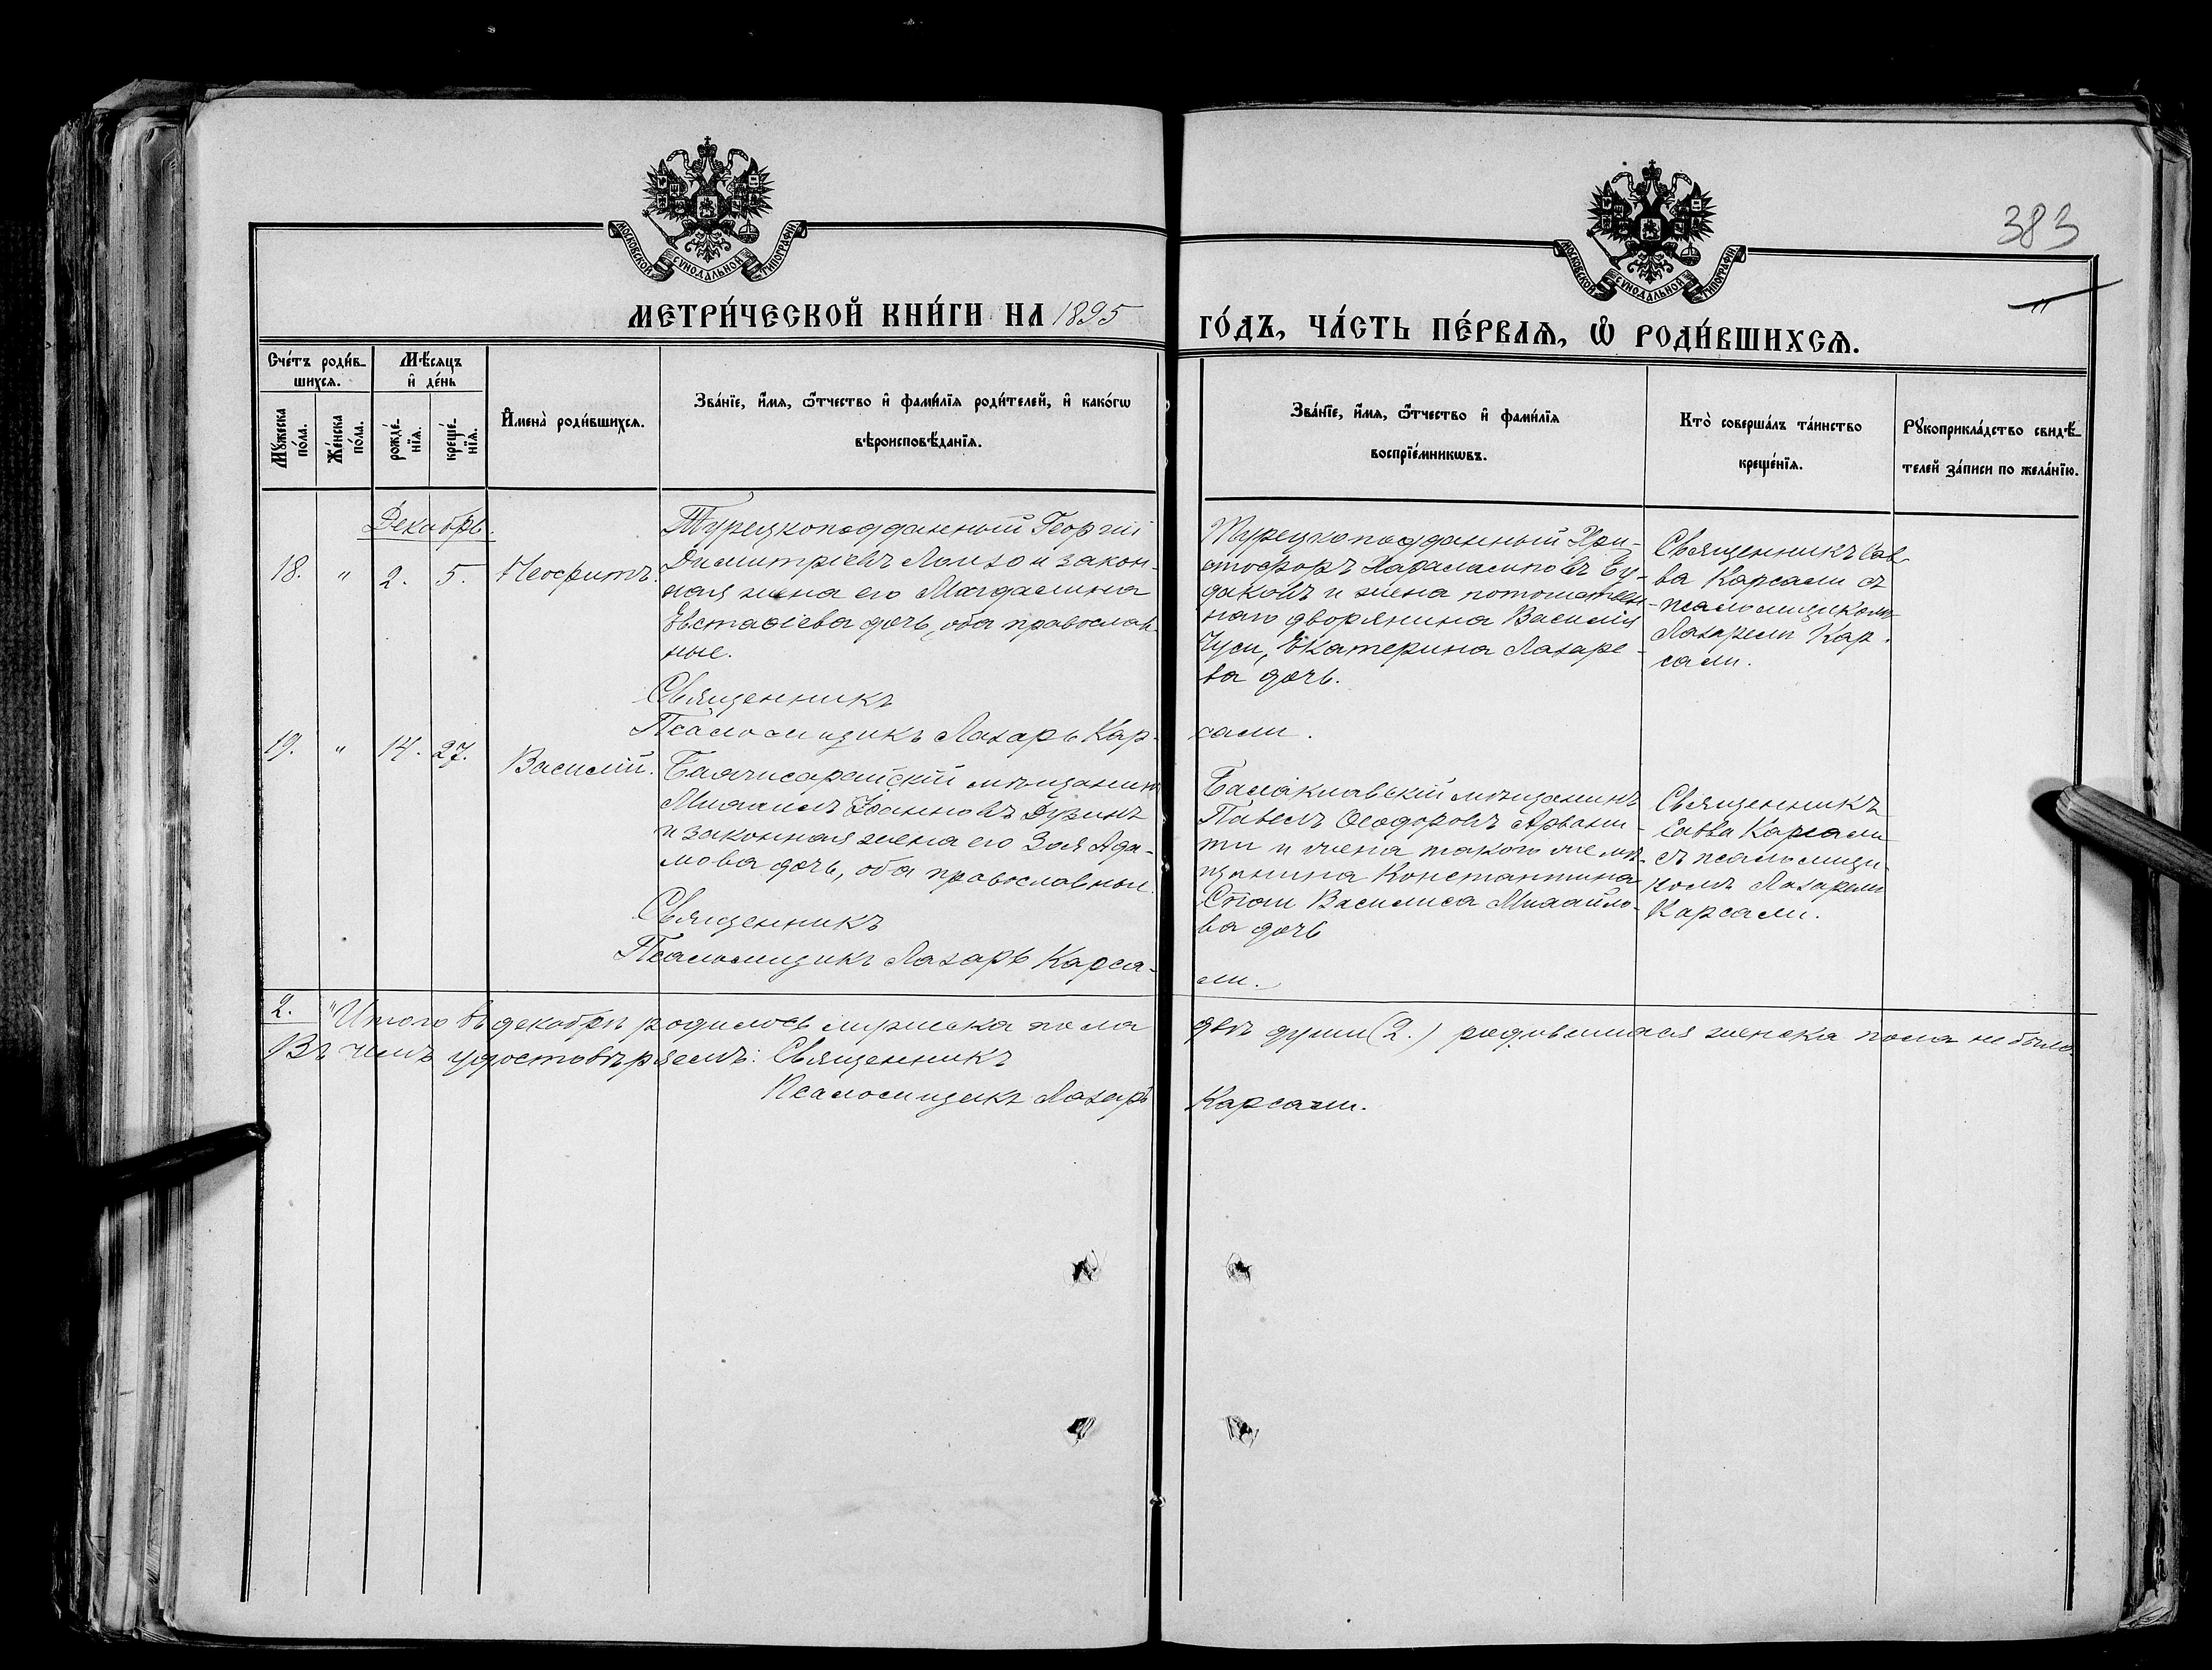 383
МОСКОВСКОЙ СУНОДАЛЬНОЙ ТИПОГРАФІИ
МОСКОВСКОЙ СУНОДАЛЬНОЙ ТИПОГРАФІИ
МЕТРИ́ЧЕСКОЙ КНИ́ГИ НА 1895
ГО́ДЪ, ЧА́СТЬ ПЕ́РВАѦ, Ѡ҆ РОДИ́ВШИХСѦ.
Сче́тъ роди́в-
шихсѧ.
Мѣ́сѧцъ
и҆ де́нь
Мꙋ́жеска
по́ла.
Же́нска
по́ла.
рожде́-
нїѧ.
креще́-
нїѧ.
И҆мена̀ роди́вшихсѧ.
Зва́нїе, и҆́мѧ, ѻ҆́тчество и҆ фами́лїѧ роди́телей, и҆ како́гѡ
вѣроисповѣ́данїѧ.
Зва́нїе, и҆́мѧ, ѻ҆́тчество и҆ фами́лїѧ
воспрїе́мникѡвъ.
Кто̀ соверша́лъ та́инство
креще́нїѧ.
Рꙋкоприкла́дство свидѣ́-
телей за́писи по жела́нїю.
Декабрь.
18. " 2. 5. Неофитъ.
Турецкоподданный Георгій
Димитріевъ и закон-
ная жена его Магдалина
Евстаѳіева дочь, оба православ-
ные.
Священникъ
Псаломщикъ Лазарь Кар-
сали.
Турецкоподданный Хри-
стофоръ Хараламповъ Еу-
даковъ и жена потомствен-
наго дворянина Василія
Чуси, Екатерина Лазаре-
ва дочь.
Священникъ Сав-
ва Карсали съ
псаломщикомъ
Лазаремъ Кар-
сали.
19. " 14. 27. Василій.
Бахчисарайскій мѣщанинъ
Михаилъ Іоанновъ Дузинъ
и законная жена его Зоя Ада-
мова дочь, оба православные.
Священникъ
Псаломщикъ Лазарь Карса-
ли.
Балаклавскій мѣщанинъ
Павелъ Ѳеодоровъ Арвани-
ти и жена такого же мѣ-
щанина Константина
Стои Василиса Михайло-
ва дочь
Священникъ
Савва Карсали
съ псаломщи-
комъ Лазаремъ
Карсали.
2. " Итого въ декабрѣ родилось мужеска пола двѣ души (2.) родившихся женска пола не было.
Въ чемъ удостовѣряемъ: Священникъ
Псаломщикъ Лазарь Карсали.